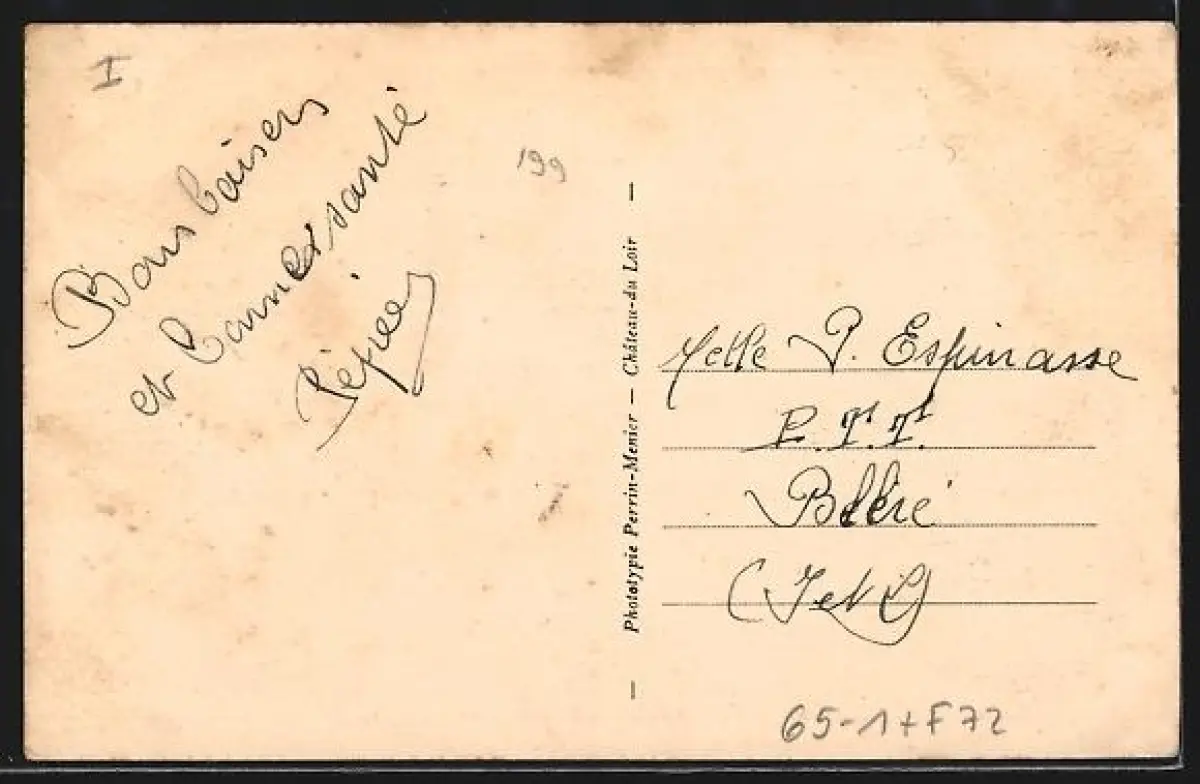 I
Bons baisers
et bonne santé
Pépée
'99
Phototypie Perrin-Menier — Château-du Loir
Melle P. Espinasse
P.T.T.
Bléré
(I et L)
65-1+F72